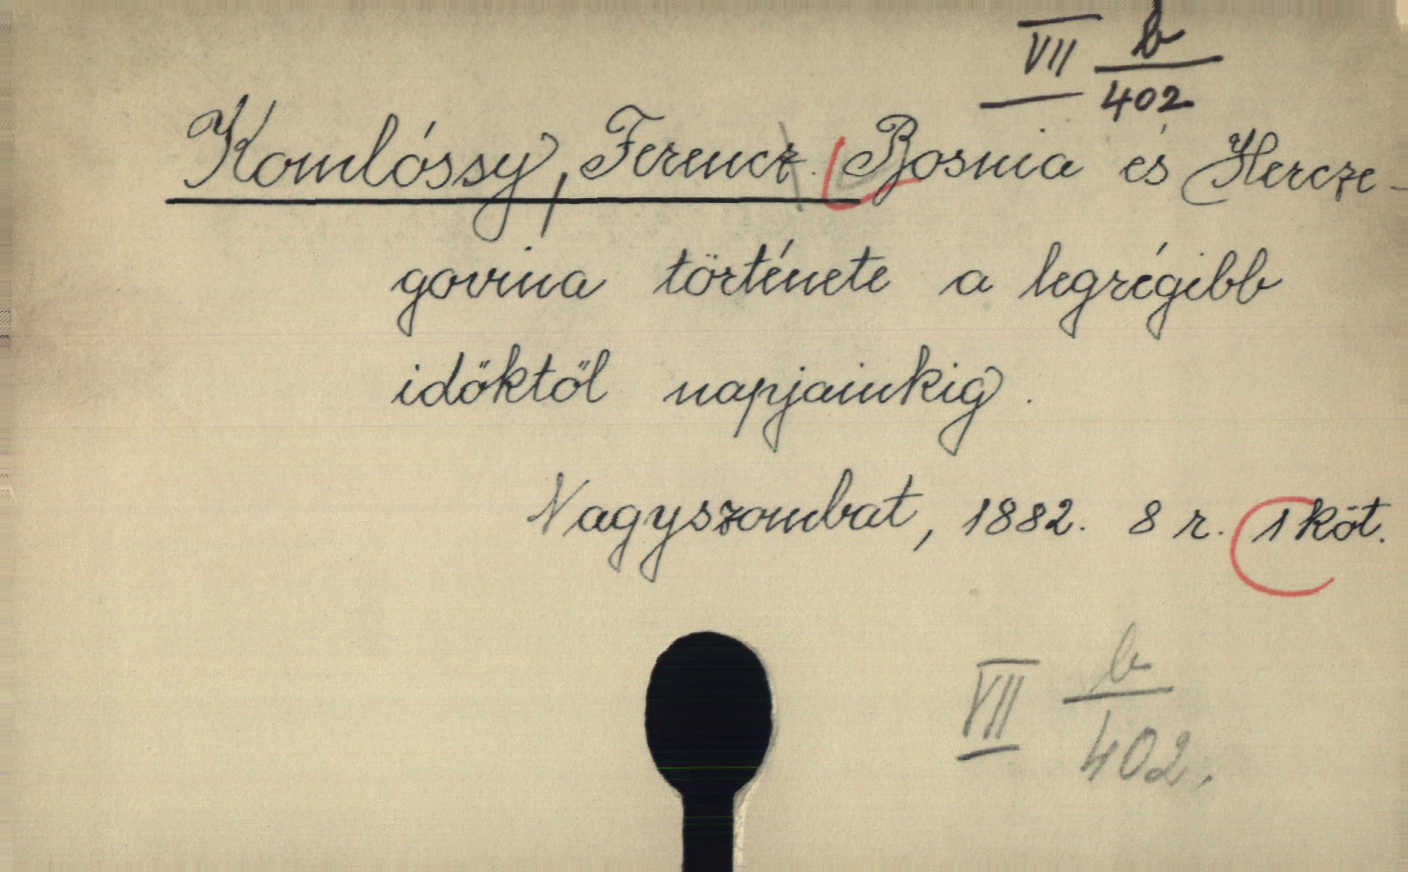 VII b/402
Komlóssy, Ferencz. Bosnia és Hercze-
govina története a legrégibb
időktől napjainkig.
Nagyszombat, 1882. 8 r. 1 köt.
VII b/402.